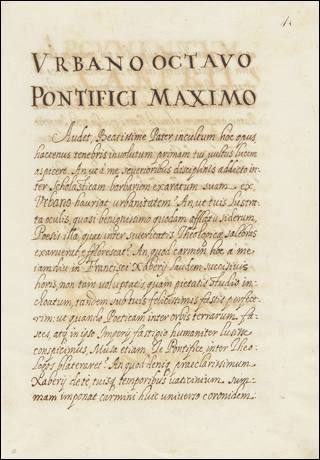 VRBANO OCTAVO
PONTIFICI MAXIMO
Audet, Beatissime Pater incultum hoc opus
hactenus tenebris inuolutum primam tui vultus lucem
aspicere. An ut a me seuerioribus disciplinis addicto in-
ter Scholasticam barbariem exaratum suam ex
Vrbano hauriat urbanitatem? An ut tuis lustra-
ta oculis, quasi benignissimo quodam afflatu siderum,
Poesis illa, quae inter seueritates Theologicas
exaruerat efflorescat? An quod carmen hoc a me
iam diu in Francisci Xauerij laudem succisiuis
horis non tam voluptatis quam pietatis studio in-
choatum, tandem sub tuis felicissimis fastis perfece-
rim: ut quando Poeticam inter orbis terrarum fa-
sces, atq in isto Imperij fastigio humaniter
conspicimus, Musae etiam, Te Pontifice inter Theo-
logos An quod denique praeclarissimum
Xauerij tuisq temporibus vaticinium sum-
mam imponat carmini huic universo coronidem: